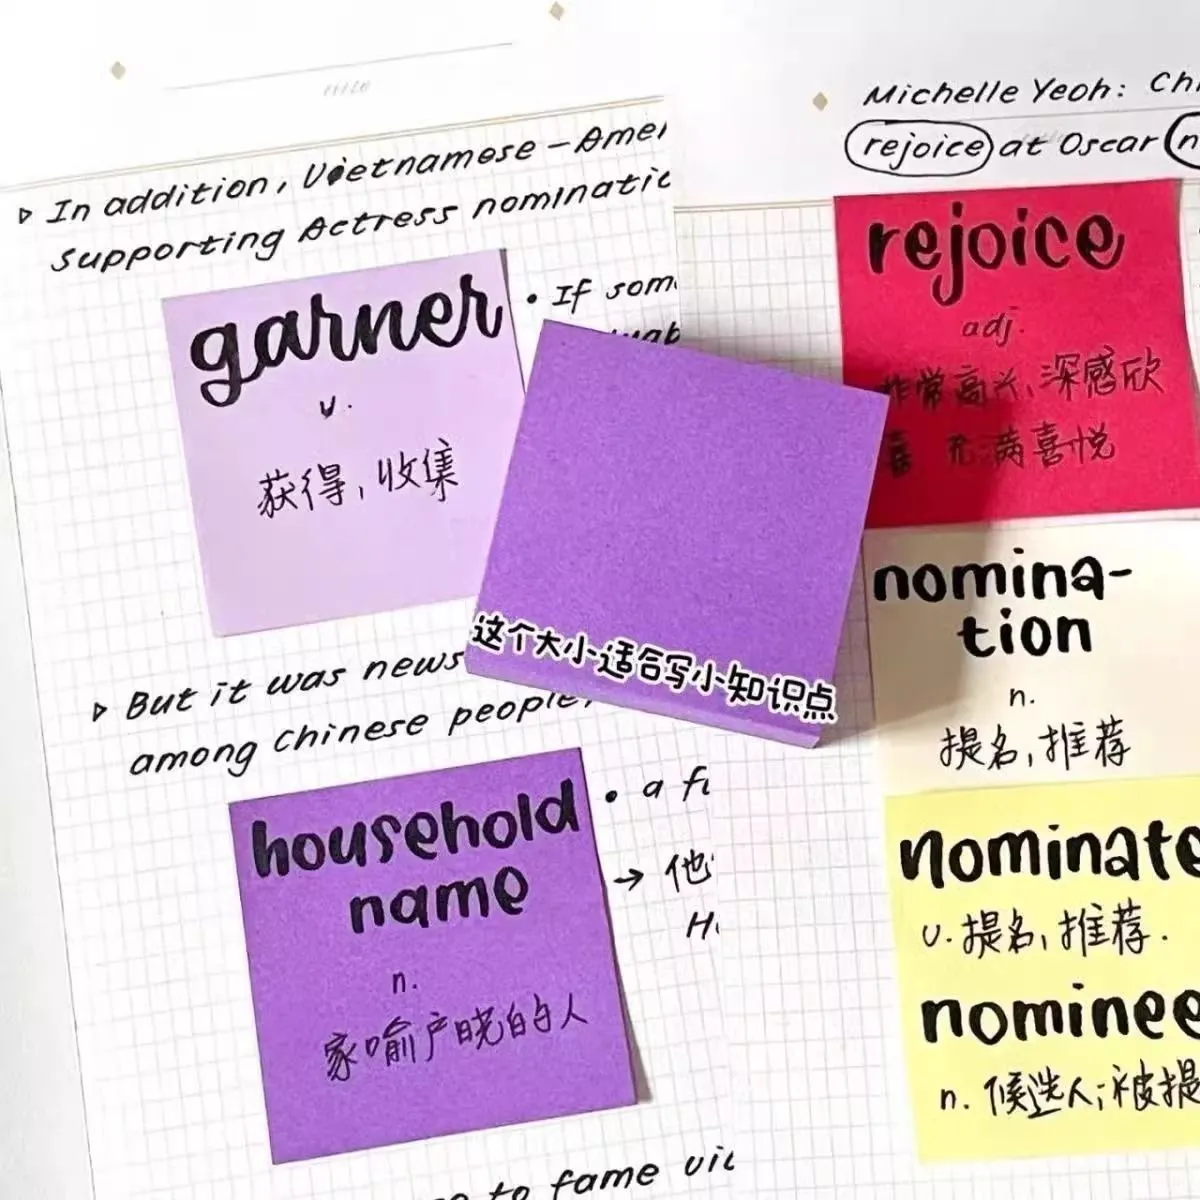 ▷ In addition, Vietnamese-Amer
Supporting Actress nominatic
garner
v.
获得,收集
• If som
这个大小适合写小知识点
▷ But it was news
among Chinese people,
household
name
n.
家喻户晓的人
• a fi
→ 他
to fame vic
Michelle Yeoh: Chi
rejoice at Oscar n
rejoice
adj.
非常高兴,深感欣
喜 充满喜悦
nomina-
tion
n.
提名,推荐
nominate
v. 提名,推荐.
nominee
n. 候选人;被提